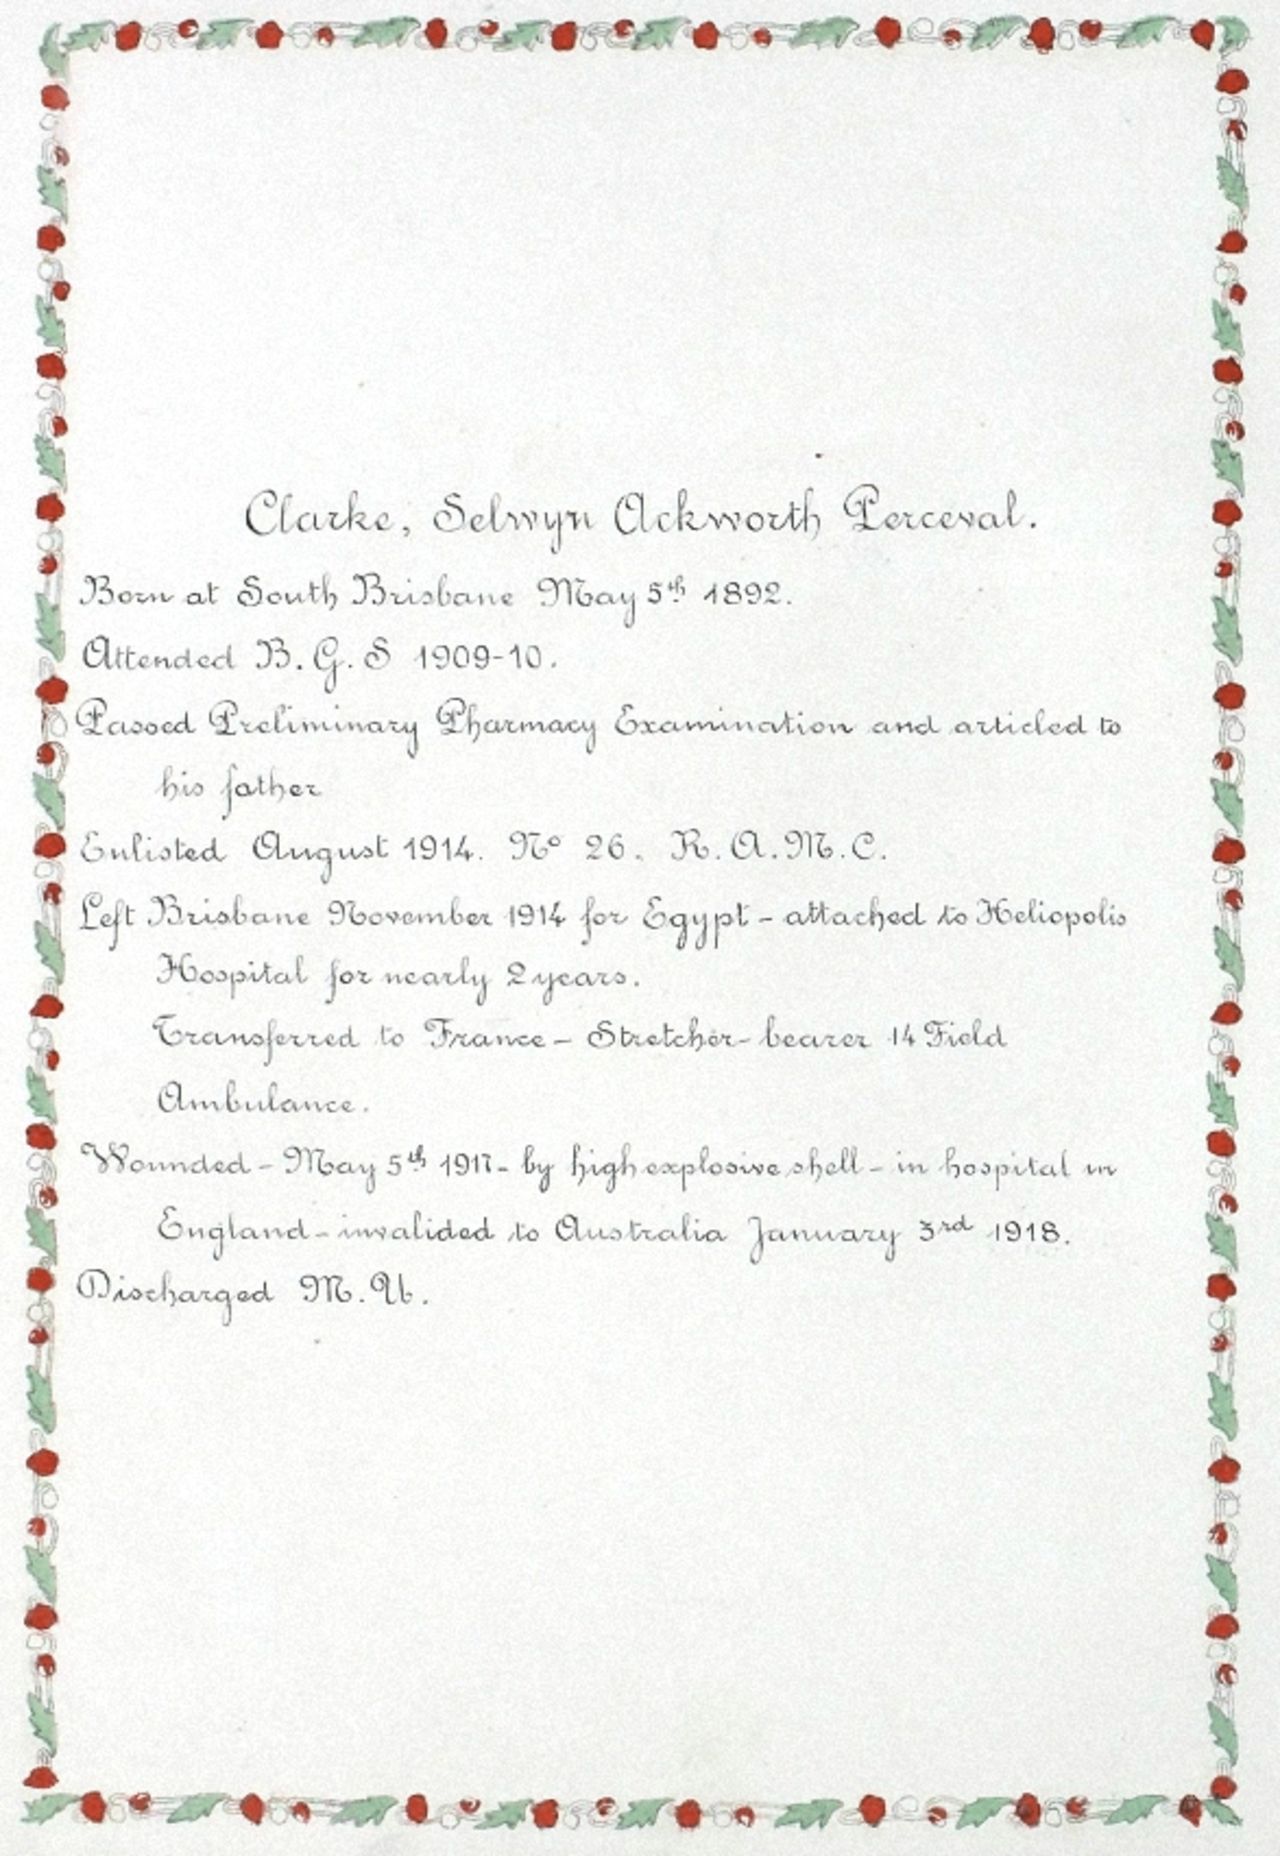 Clarke, Selwyn Ackworth Perceval.
Born at South Brisbane May 5th 1892.
Attended B.G.S 1909-10.
Passed Preliminary Pharmacy Examination and articled to
his father
Enlisted August 1914. No 26. R.A.M.C.
Left Brisbane November 1914 for Egypt - attached to Heliopolis
Hospital for nearly 2 years.
Transferred to France - Stretcher-bearer 14 Field
Ambulance.
Wounded - May 5th 1917 - by high explosive shell - in hospital in
England - invalided to Australia January 3rd 1918.
Discharged M.U.